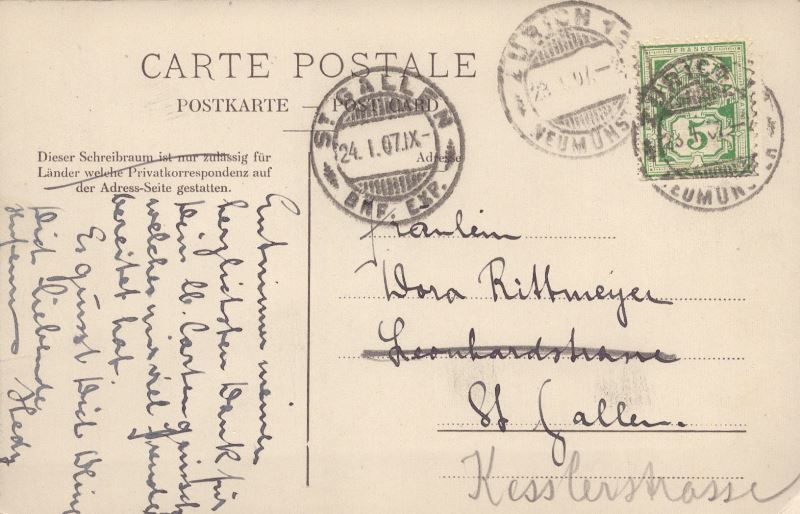 CARTE POSTALE
POSTKARTE — POST CARD
Dieser Schreibraum ist nur zulässig für
Länder welche Privatkorrespondenz auf
der Adress-Seite gestatten.
Adresse
ST. GALLEN
24. I. 07. IX-
BRF. EXP.
ZÜRICH
23. I. 07.
NEUMÜNST
FRANCO
5
ZÜRICH
23
NEUMÜNSTER
Fräulein
Dora Rittmeyer
Leonhardstrasse
St Gallen.
Kesslerstrasse
meinen
herzlichsten Dank für
Dein lb. Kartengruss
welcher mir viel Freude
bereitet hat.
Es grüsst Dich
Dich liebende
Hedy